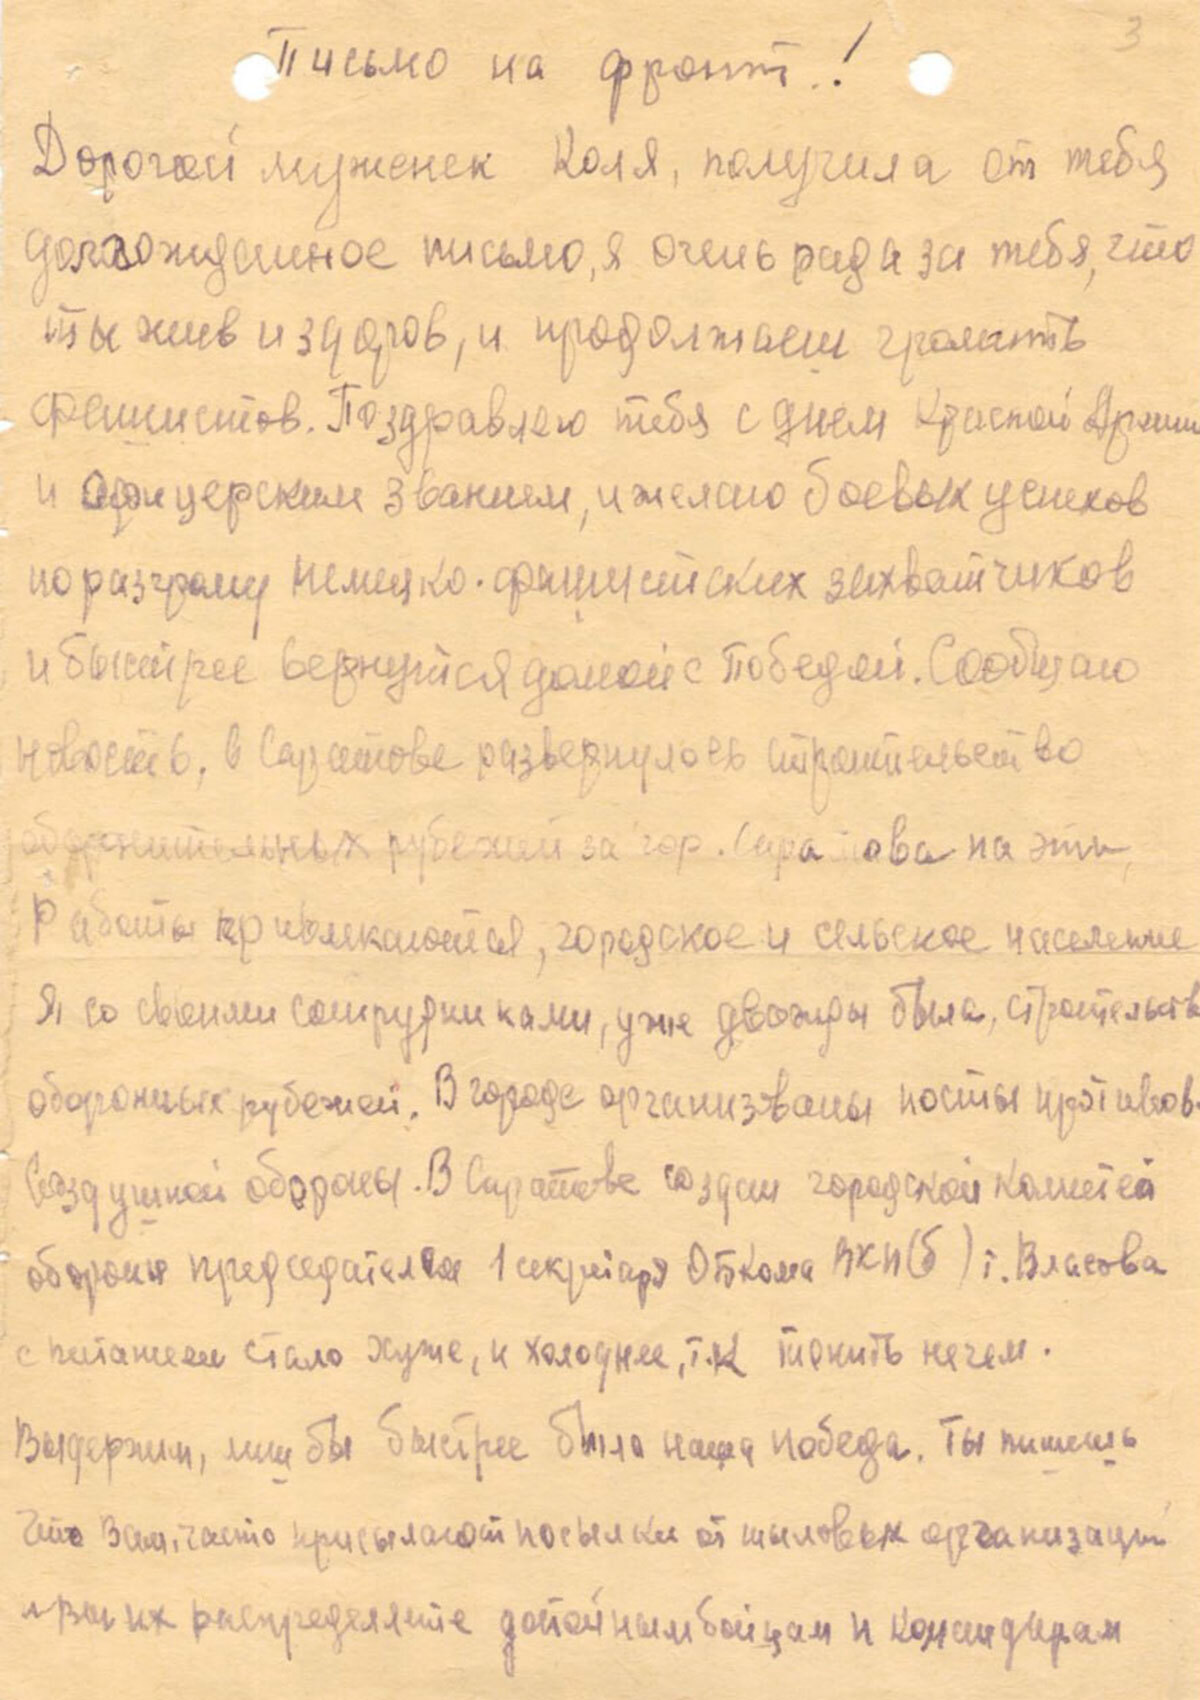 3
Письмо на фронт..!
Дорогой муженек Коля, получила от тебя
долгожданное письмо, я очень рада за тебя, что
ты жив и здоров, и продолжаеш громить
фашистов. Поздравляю тебя с днем Красной Армии
и офицерским званием, и желаю боевых успехов
по разгрому немецко-фашистских захватчиков
и быстрее вернутся домой с Победой. Сообщаю
новость, в Саратове развернулось строительство
оборонительных рубежей за гор. Саратова на эти,
Работы привлекаются, городское и сельское население
Я, со своими сотрудниками, уже дважды была, строительств
оборонных рубежей. В городе организованы посты противов-
воздушной обороны. В Саратове создан городской комитет
обороны председателем 1 секретаря Обкома ВКП(б) т. Власова
с питанием стало хуже, и холоднее, т.к топить нечем.
Выдержим, лиш бы быстрее была наша победа. Ты пишешь
что Вам, часто присылают посылки от тыловых организаций
и Вы их распределяете достойным бойцам и командирам